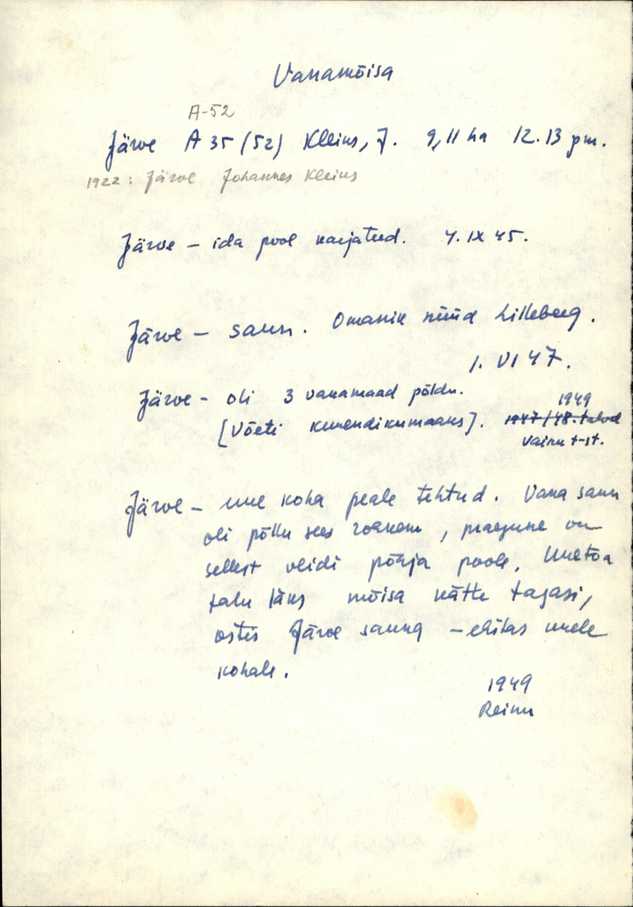 Vanamõisa
A-52
Järve A 35 (52) Kleius, J. 9,11 ha 12.13 pm.
1922: Järve Johannes Kleius
Järve – ida pool karjatud. 4. IX 45.
Järve – saun. Omanik nüüd Lilleberg.
1. VI 47.
Järve – oli 3 vanamaad põldu.
1949
[Võeti kunendikumaaks]. 1947/48. talvel
Vainu t-st.
Järve – uue koha peale tehtud. Vana saun
oli põllu sees rohkem, praegune on
sellest veidi põhja poole. Uuetoa
talu läks mõisa kätte tagasi,
ostis Järve sauna – ehitas uuele
kohale.
1949
Reinu